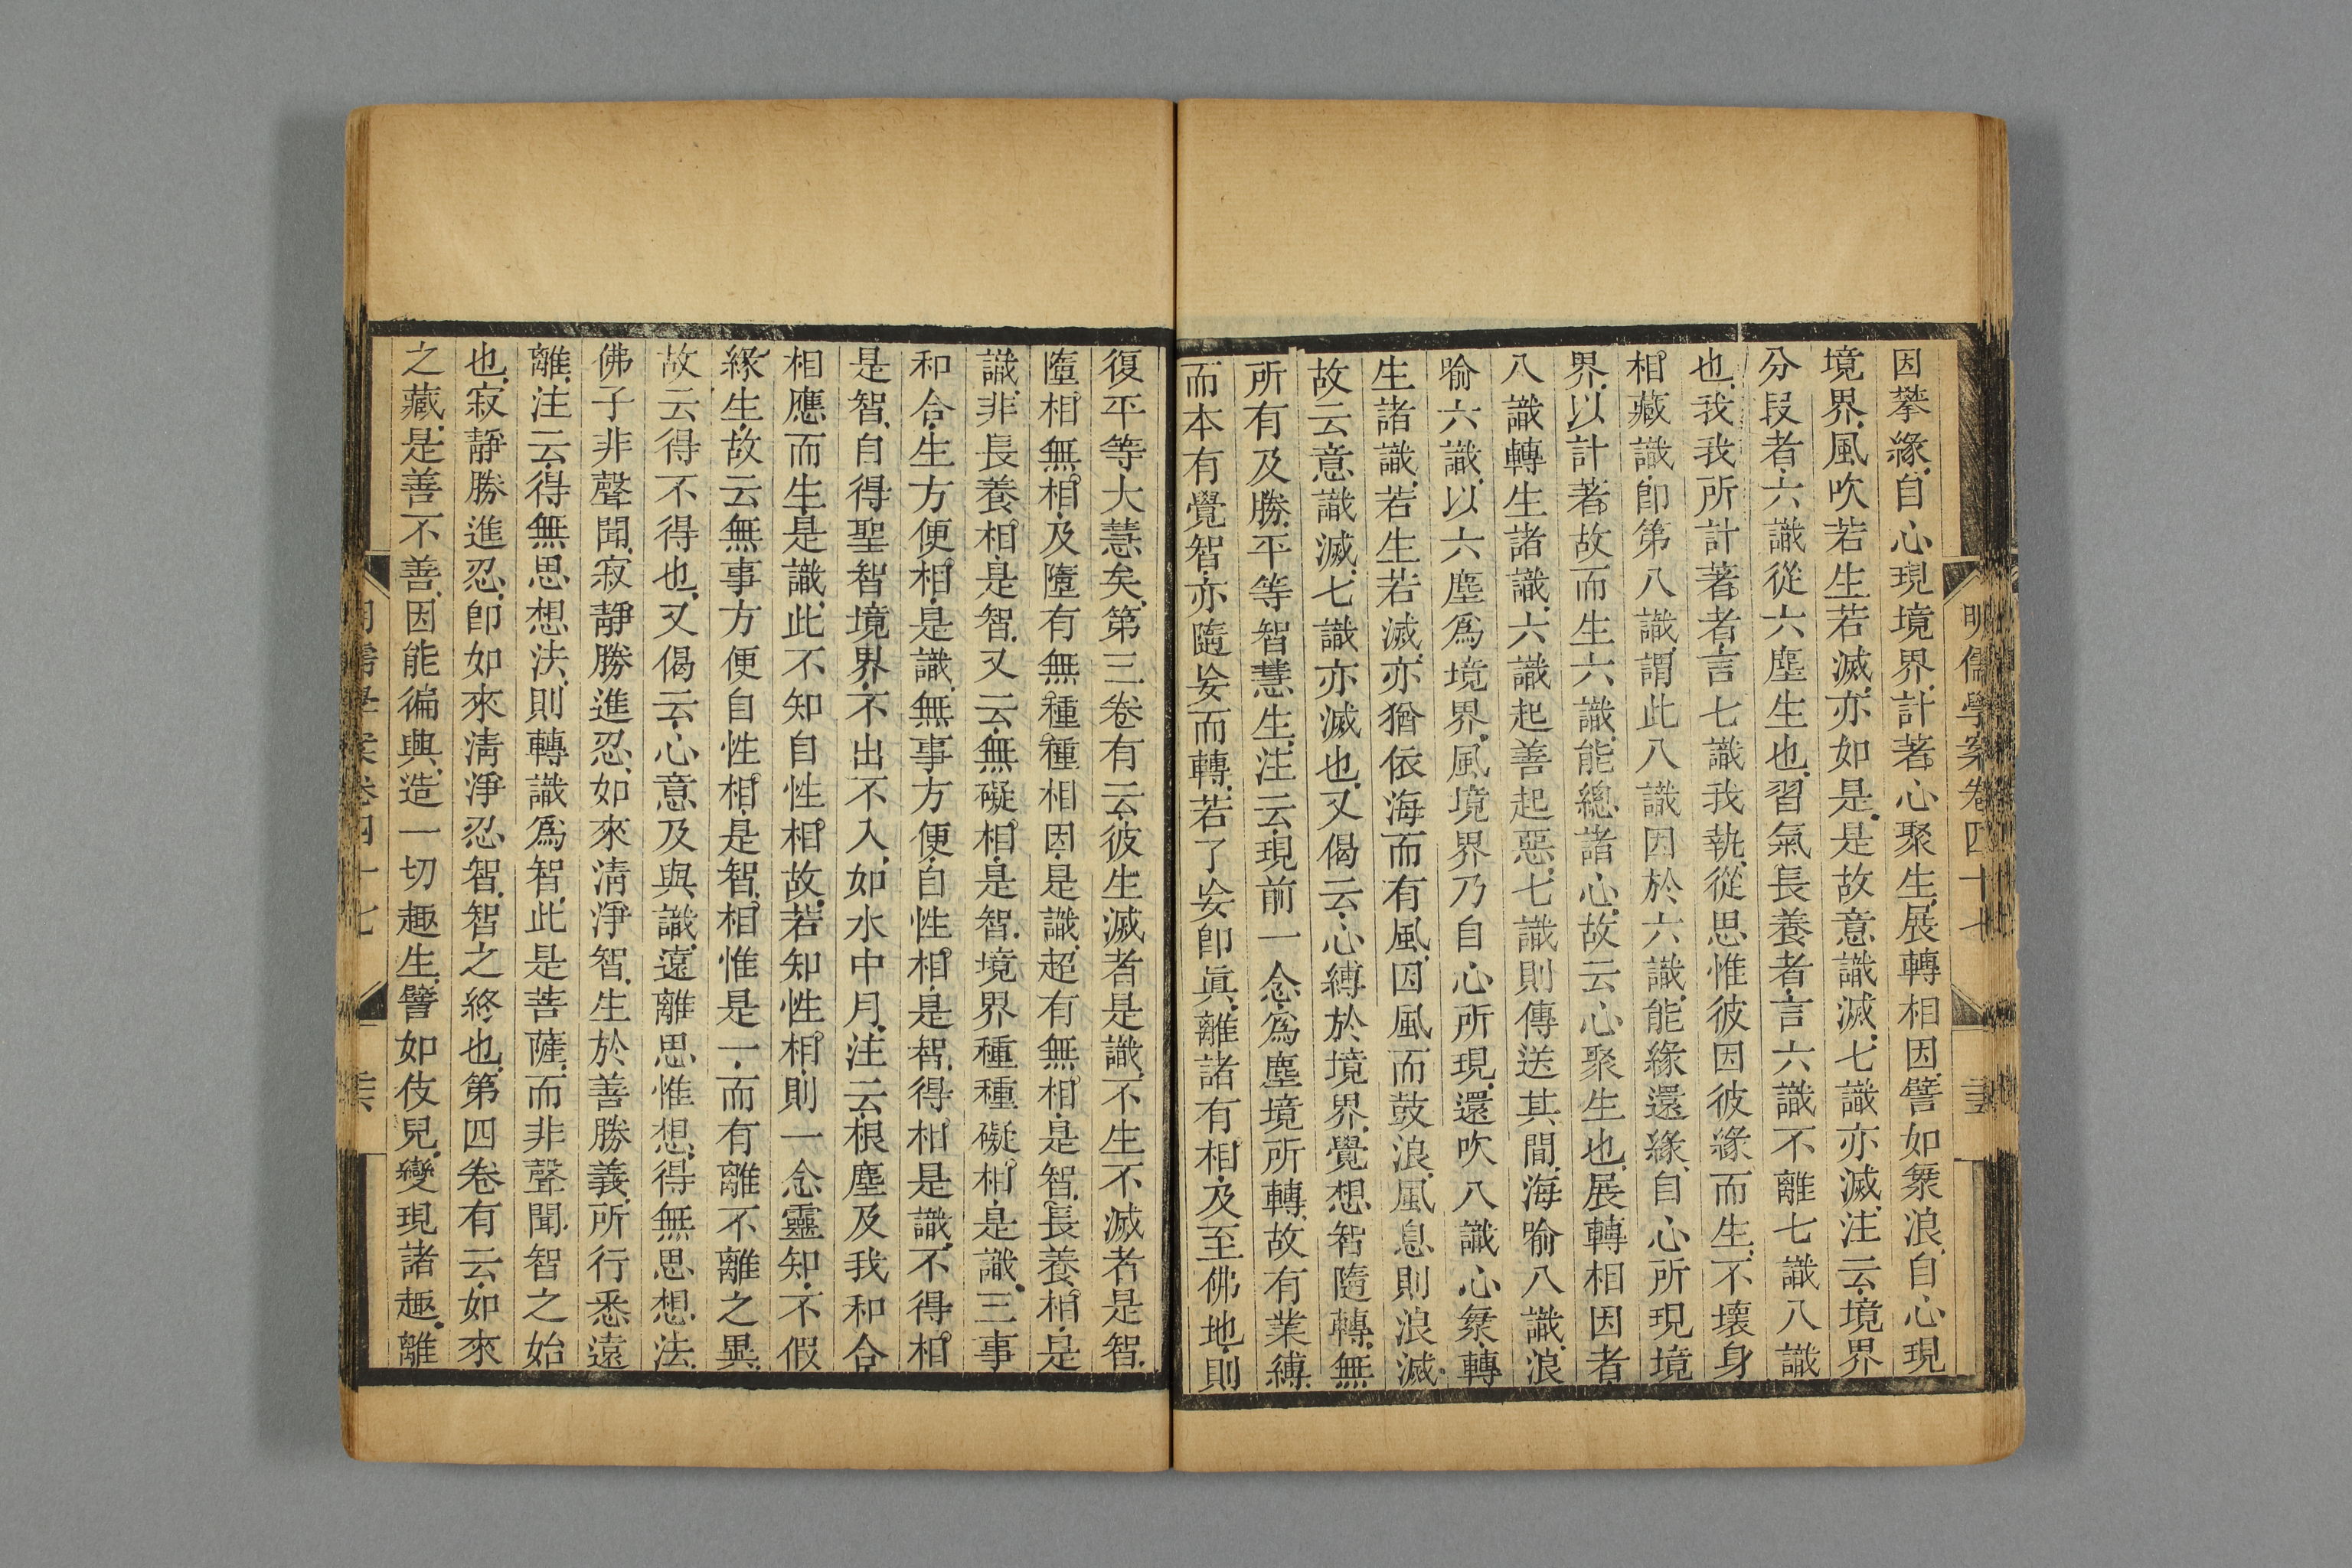 明儒學案卷四十七
因攀緣自心現境界計著心聚生展轉相因譬如衆浪自心現
境界風吹若生若滅亦如是是故意識滅七識亦滅注云境界
分段者六識從六塵生也習氣長養者言六識不離七識八識
也我我所計著者言七識我執從思惟彼因彼緣而生不壞身
相藏識卽第八識謂此八識因於六識能緣還緣自心所現境
界以計著故而生六識能總諸心故云心聚生也展轉相因者
八識轉生諸識六識起善起惡七識則傳送其間海喻八識浪
喻六識以六塵爲境界風境界乃自心所現還吹八識心衆轉
生諸識若生若滅亦猶依海而有風因風而鼓浪風息則浪滅
故云意識滅七識亦滅也又偈云心縛於境界覺想智隨轉無
所有及勝平等智慧生注云現前一念爲塵境所轉故有業縛
而本有覺智亦隨妄而轉若了妄卽眞離諸有相及至佛地則
復平等大慧矣第三卷有云彼生滅者是識不生不滅者是智
墮相無相及墮有無種種相因是識超有無相是智長養相是
識非長養相是智又云無礙相是智境界種種礙相是識三事
和合生方便相是識無事方便自性相是智得相是識不得相
是智自得聖智境界不出不入如水中月注云根塵及我和合
相應而生是識此不知自性相故若知性相則一念靈知不假
緣生故云無事方便自性相是智相惟是一而有離不離之異
故云得不得也又偈云心意及與識遠離思惟想得無思想法
佛子非聲聞寂靜勝進忍如來淸淨智生於善勝義所行悉遠
離注云得無思想法則轉識爲智此是菩薩而非聲聞智之始
也寂靜勝進忍卽如來淸淨忍智智之終也第四卷有云如來
之藏是善不善因能徧興造一切趣生譬如伎兒變現諸趣離